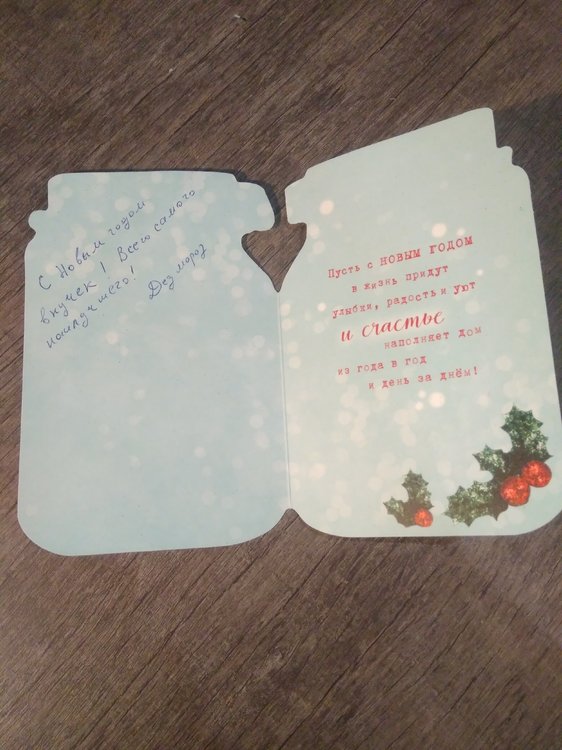 С Новым годом
внучек! Всего самого
наилучшего!
Дед мороз
Пусть с НОВЫМ ГОДОМ
в жизнь придут
улыбки, радость и уют
и счастье
наполняет дом
из года в год
и день за днём!